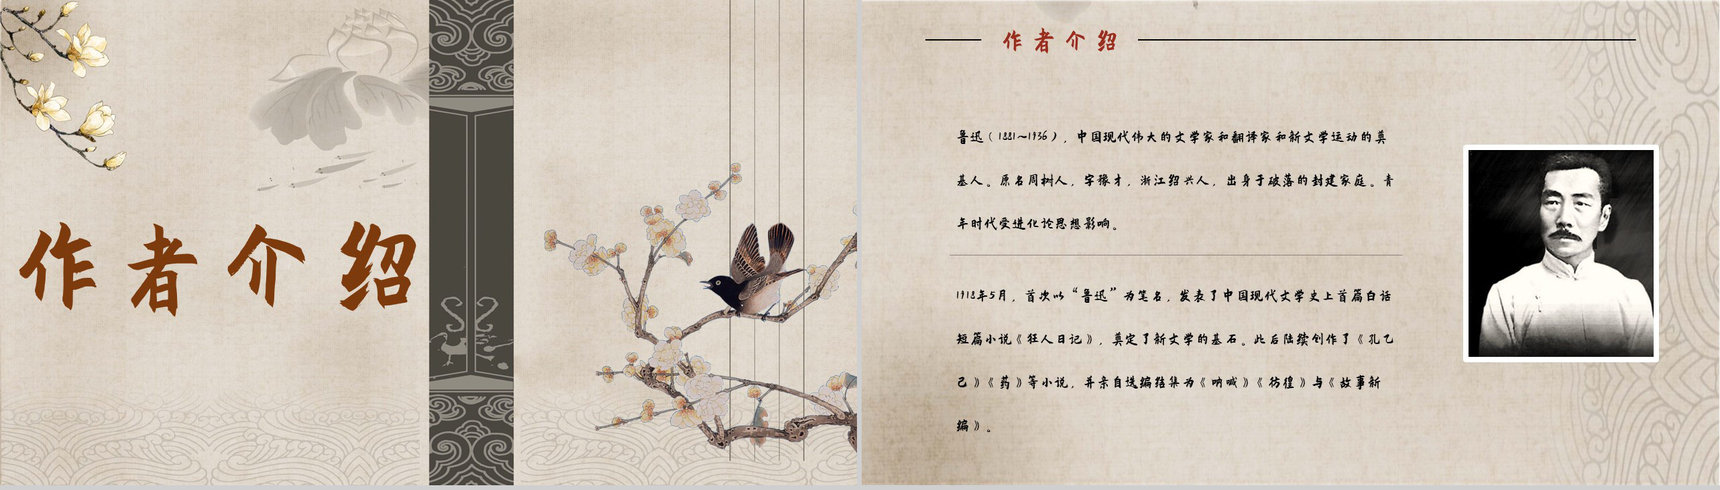 作者介绍
作者介绍
鲁迅（1881~1936），中国现代伟大的文学家和翻译家和新文学运动的奠
基人。原名周树人，字豫才，浙江绍兴人，出身于破落的封建家庭。青
年时代受进化论思想影响。
1918年5月，首次以“鲁迅”为笔名，发表了中国现代文学史上首篇白话
短篇小说《狂人日记》，奠定了新文学的基石。此后陆续创作了《孔乙
己》《药》等小说，并亲自选编结集为《呐喊》《彷徨》与《故事新
编》。